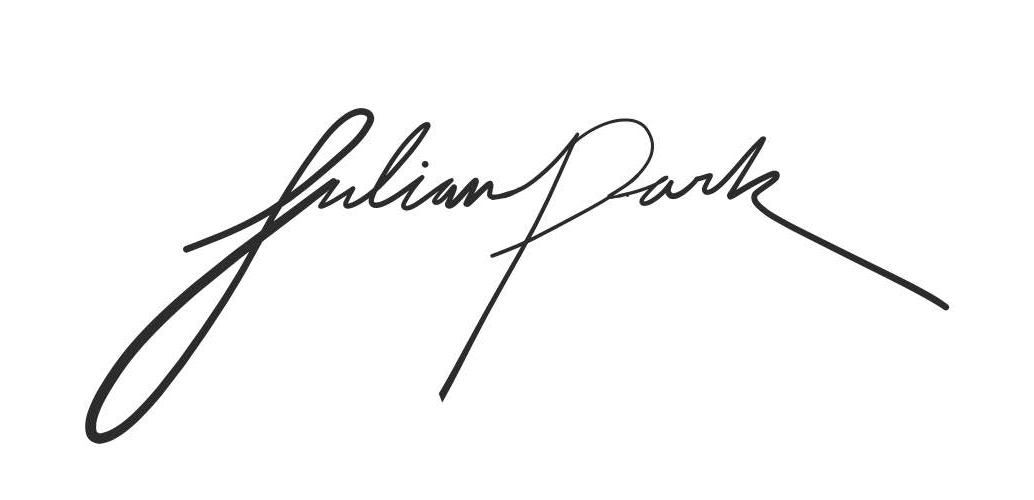 Julian Park